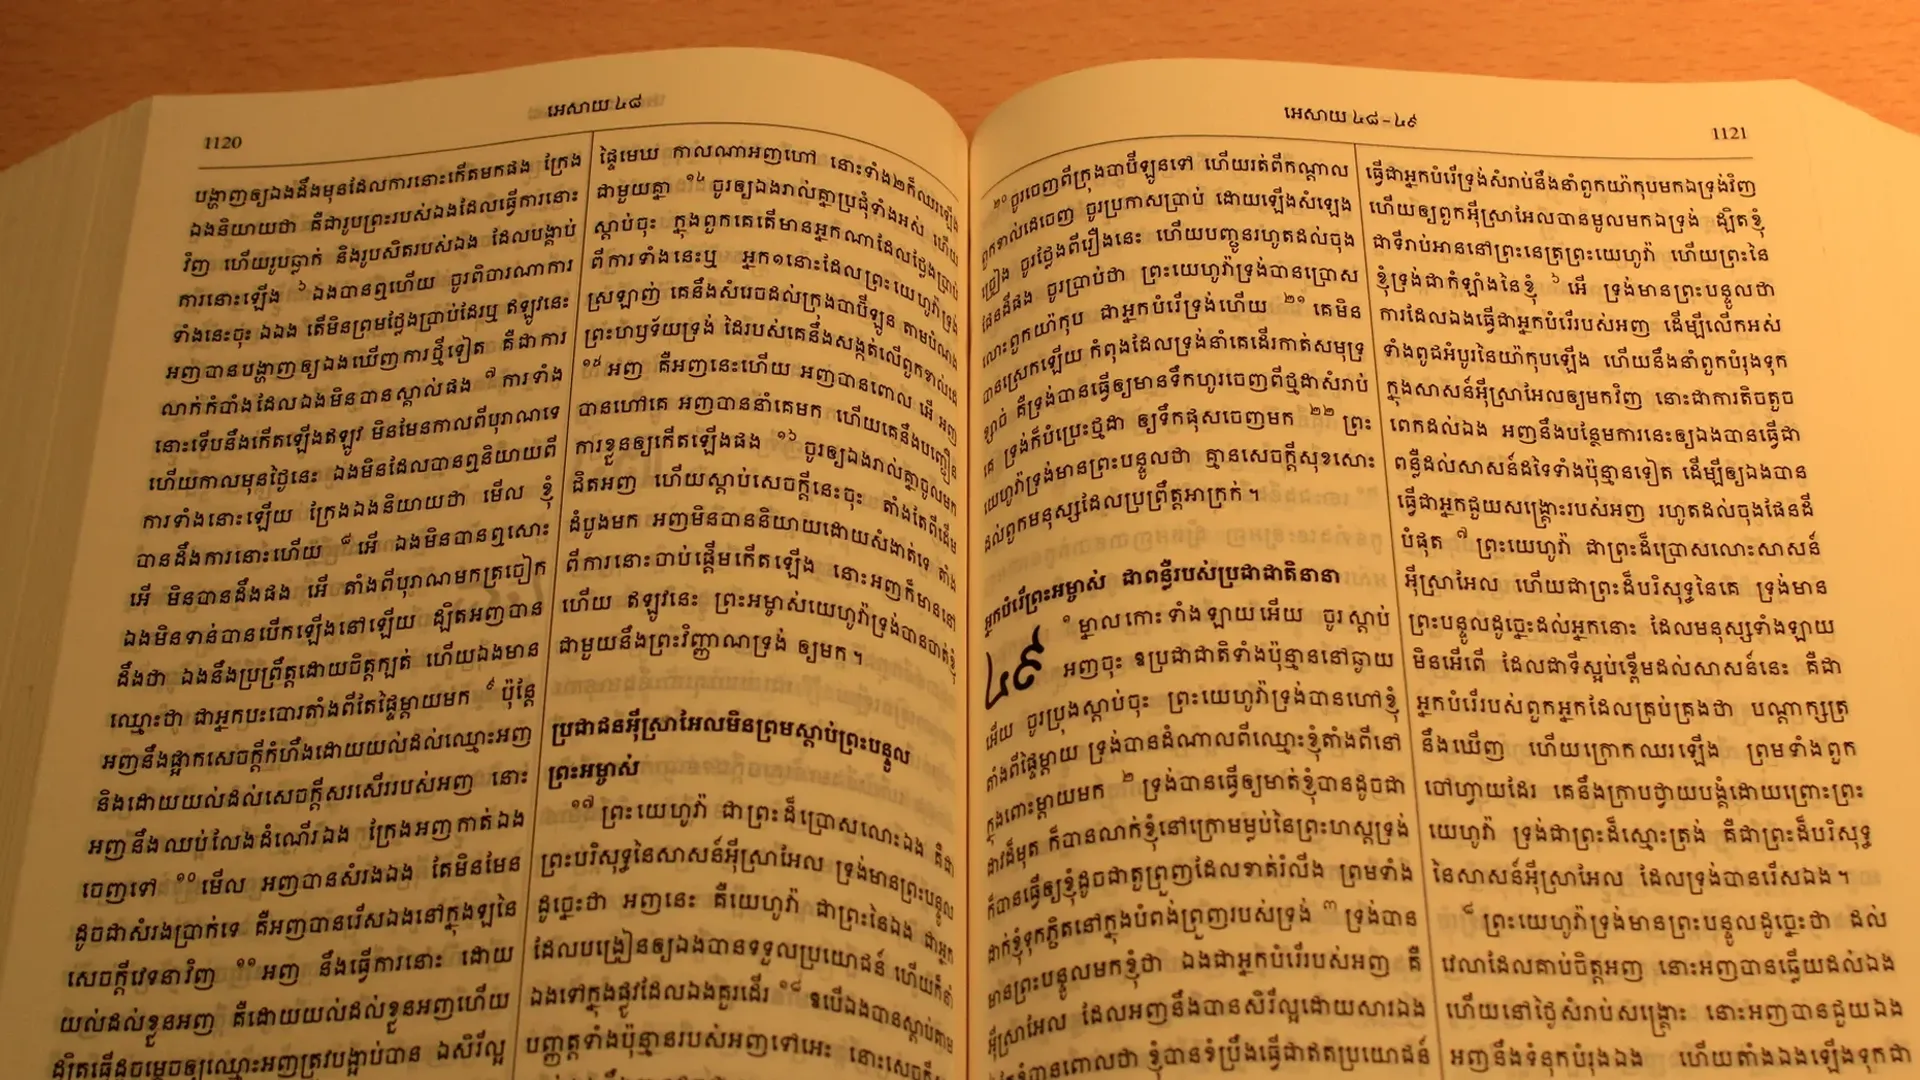 1120
អេសាយ ៤៨
បង្ហាញឲ្យឯងដឹងមុនដែលការនោះកើតមកផង ក្រែង
ឯងនិយាយថា គឺជារូបព្រះរបស់ឯងដែលធ្វើការនោះ
វិញ ហើយរូបឆ្លាក់ និងរូបសិតរបស់ឯង ដែលបង្គាប់
ការនោះឡើង ៦ ឯងបានឮហើយ ចូរពិចារណាការ
ទាំងនេះចុះ ឯឯង តើមិនព្រមថ្លែងប្រាប់ដែរឬ ឥឡូវនេះ
អញបានបង្ហាញឲ្យឯងឃើញការថ្មីទៀត គឺជាការ
លាក់កំបាំងដែលឯងមិនបានស្គាល់ផង ៧ ការទាំង
នោះទើបនឹងកើតឡើងឥឡូវ មិនមែនកាលពីបុរាណទេ
ហើយកាលមុនថ្ងៃនេះ ឯងមិនដែលបានឮនិយាយពី
ការទាំងនោះឡើយ ក្រែងឯងនិយាយថា មើល ខ្ញុំ
បានដឹងការនោះហើយ ៨ អើ ឯងមិនបានឮសោះ
អើ មិនបានដឹងផង អើ តាំងពីបុរាណមកត្រចៀក
ឯងមិនទាន់បានបើកឡើងនៅឡើយ ដ្បិតអញបាន
ដឹងថា ឯងនឹងប្រព្រឹត្តដោយចិត្តក្បត់ ហើយឯងមាន
ឈ្មោះថា ជាអ្នកបះបោរតាំងពីតែផ្ទៃម្តាយមក ៩ ប៉ុន្តែ
អញនឹងផ្អាកសេចក្ដីកំហឹងដោយយល់ដល់ឈ្មោះអញ
និងដោយយល់ដល់សេចក្ដីសរសើររបស់អញ នោះ
អញនឹងឈប់លែងដំណើរឯង ក្រែងអញកាត់ឯង
ចេញទៅ ១០ មើល អញបានសំរងឯង តែមិនមែន
ដូចជាសំរងប្រាក់ទេ គឺអញបានរើសឯងនៅក្នុងឡនៃ
សេចក្ដីវេទនាវិញ ១១ អញ នឹងធ្វើការនោះ ដោយ
យល់ដល់ខ្លួនអញ គឺដោយយល់ដល់ខ្លួនអញហើយ
ដ្បិតធ្វើដូចម្តេចឲ្យឈ្មោះអញត្រូវបង្អាប់បាន ឯសិរីល្អ
ផ្ទៃមេឃ កាលណាអញហៅ នោះទាំង២ក៏ឈរឡើង
ជាមួយគ្នា ១៤ ចូរឲ្យឯងរាល់គ្នាប្រជុំទាំងអស់ ហើយ
ស្តាប់ចុះ ក្នុងពួកគេតើមានអ្នកណាដែលថ្លែងប្រាប់
ពីការទាំងនេះឬ អ្នក១នោះដែលព្រះយេហូវ៉ាទ្រង់
ស្រឡាញ់ គេនឹងសំរេចដល់ក្រុងបាប៊ីឡូន តាមបំណង
ព្រះហឫទ័យទ្រង់ ដៃរបស់គេនឹងសង្កត់លើពួកខាល់ដេ
១៥ អញ គឺអញនេះហើយ អញបានពោល អើ អញ
បានហៅគេ អញបាននាំគេមក ហើយគេនឹងបញ្ជឿន
ការខ្លួនឲ្យកើតឡើងផង ១៦ ចូរឲ្យឯងរាល់គ្នាចូលមក
ជិតអញ ហើយស្តាប់សេចក្ដីនេះចុះ តាំងតែពីដើម
ដំបូងមក អញមិនបាននិយាយដោយសំងាត់ទេ តាំង
ពីការនោះចាប់ផ្តើមកើតឡើង នោះអញក៏មាននៅ
ហើយ ឥឡូវនេះ ព្រះអម្ចាស់យេហូវ៉ាទ្រង់បានចាត់ខ្ញុំ
ជាមួយនឹងព្រះវិញ្ញាណទ្រង់ ឲ្យមក។
ប្រជាជនអ៊ីស្រាអែលមិនព្រមស្តាប់ព្រះបន្ទូល
ព្រះអម្ចាស់
១៧ ព្រះយេហូវ៉ា ជាព្រះដ៏ប្រោសលោះឯង គឺជា
ព្រះបរិសុទ្ធនៃសាសន៍អ៊ីស្រាអែល ទ្រង់មានព្រះបន្ទូល
ដូច្នេះថា អញនេះ គឺយេហូវ៉ា ជាព្រះនៃឯង ជាអ្នក
ដែលបង្រៀនឲ្យឯងបានទទួលប្រយោជន៍ ហើយក៏នាំ
ឯងទៅក្នុងផ្លូវដែលឯងគួរដើរ ១៨ ឱបើឯងបានស្តាប់តាម
បញ្ញត្តទាំងប៉ុន្មានរបស់អញទៅអេះ នោះសេចក្ដី
អេសាយ ៤៨-៤៩
1121
២០ ចូរចេញពីក្រុងបាប៊ីឡូនទៅ ហើយរត់ពីកណ្តាល
ពួកខាល់ដេចេញ ចូរប្រកាសប្រាប់ ដោយឡើងសំឡេង
ច្រៀង ចូរថ្លែងពីរឿងនេះ ហើយបញ្ជូនរហូតដល់ចុង
ផែនដីផង ចូរប្រាប់ថា ព្រះយេហូវ៉ាទ្រង់បានប្រោស
លោះពួកយ៉ាកុប ជាអ្នកបំរើទ្រង់ហើយ ២១ គេមិន
បានស្រេកឡើយ កំពុងដែលទ្រង់នាំគេដើរកាត់សមុទ្រ
ខ្សាច់ គឺទ្រង់បានធ្វើឲ្យមានទឹកហូរចេញពីថ្មដាសំរាប់
គេ ទ្រង់ក៏បំប្រេះថ្មដា ឲ្យទឹកផុសចេញមក ២២ ព្រះ
យេហូវ៉ាទ្រង់មានព្រះបន្ទូលថា គ្មានសេចក្ដីសុខសោះ
ដល់ពួកមនុស្សដែលប្រព្រឹត្តអាក្រក់។
អ្នកបំរើព្រះអម្ចាស់ ជាពន្លឺរបស់ប្រជាជាតិនានា
៤៩
១ ម្នាលកោះទាំងឡាយអើយ ចូរស្តាប់
អញចុះ ឱប្រជាជាតិទាំងប៉ុន្មាននៅឆ្ងាយ
អើយ ចូរប្រុងស្តាប់ចុះ ព្រះយេហូវ៉ាទ្រង់បានហៅខ្ញុំ
តាំងពីផ្ទៃម្តាយ ទ្រង់បានដំណាលពីឈ្មោះខ្ញុំតាំងពីនៅ
ក្នុងពោះម្តាយមក ២ ទ្រង់បានធ្វើឲ្យមាត់ខ្ញុំបានដូចជា
ដាវដ៏មុត ក៏បានលាក់ខ្ញុំនៅក្រោមម្លប់នៃព្រះហស្តទ្រង់
ក៏បានធ្វើឲ្យខ្ញុំដូចជាតួព្រួញដែលខាត់រំលីង ព្រមទាំង
ដាក់ខ្ញុំទុកក្បិតនៅក្នុងបំពង់ព្រួញរបស់ទ្រង់ ៣ ទ្រង់បាន
មានព្រះបន្ទូលមកខ្ញុំថា ឯងជាអ្នកបំរើរបស់អញ គឺ
អ៊ីស្រាអែល ដែលអញនឹងបានសិរីល្អដោយសារឯង
ខ្ញុំបានពោលថា ខ្ញុំបានខំប្រឹងធ្វើជាឥតប្រយោជន៍
ធ្វើជាអ្នកបំរើទ្រង់សំរាប់នឹងនាំពួកយ៉ាកុបមកឯទ្រង់វិញ
ហើយឲ្យពួកអ៊ីស្រាអែលបានមូលមកឯទ្រង់ ដ្បិតខ្ញុំ
ជាទីរាប់អាននៅព្រះនេត្រព្រះយេហូវ៉ា ហើយព្រះនៃ
ខ្ញុំទ្រង់ជាកំឡាំងនៃខ្ញុំ ៦ អើ ទ្រង់មានព្រះបន្ទូលថា
ការដែលឯងធ្វើជាអ្នកបំរើរបស់អញ ដើម្បីលើកអស់
ទាំងពូជអំបូរនៃយ៉ាកុបឡើង ហើយនឹងនាំពួកបំរុងទុក
ក្នុងសាសន៍អ៊ីស្រាអែលឲ្យមកវិញ នោះជាការតិចតួច
ពេកដល់ឯង អញនឹងបន្ថែមការនេះឲ្យឯងបានធ្វើជា
ពន្លឺដល់សាសន៍ដទៃទាំងប៉ុន្មានទៀត ដើម្បីឲ្យឯងបាន
ធ្វើជាអ្នកជួយសង្គ្រោះរបស់អញ រហូតដល់ចុងផែនដី
បំផុត ៧ ព្រះយេហូវ៉ា ជាព្រះដ៏ប្រោសលោះសាសន៍
អ៊ីស្រាអែល ហើយជាព្រះដ៏បរិសុទ្ធនៃគេ ទ្រង់មាន
ព្រះបន្ទូលដូច្នេះដល់អ្នកនោះ ដែលមនុស្សទាំងឡាយ
មិនអើពើ ដែលជាទីស្អប់ខ្ពើមដល់សាសន៍នេះ គឺជា
អ្នកបំរើរបស់ពួកអ្នកដែលគ្រប់គ្រងថា បណ្តាក្សត្រ
នឹងឃើញ ហើយក្រោកឈរឡើង ព្រមទាំងពួក
ចៅហ្វាយដែរ គេនឹងក្រាបថ្វាយបង្គំដោយព្រោះព្រះ
យេហូវ៉ា ទ្រង់ជាព្រះដ៏ស្មោះត្រង់ គឺជាព្រះដ៏បរិសុទ្ធ
នៃសាសន៍អ៊ីស្រាអែល ដែលទ្រង់បានរើសឯង។
៨ ព្រះយេហូវ៉ាទ្រង់មានព្រះបន្ទូលដូច្នេះថា ដល់
វេលាដែលគាប់ចិត្តអញ នោះអញបានឆ្លើយដល់ឯង
ហើយនៅថ្ងៃសំរាប់សង្គ្រោះ នោះអញបានជួយឯង
អញនឹងទំនុកបំរុងឯង ហើយតាំងឯងឡើងទុកជា